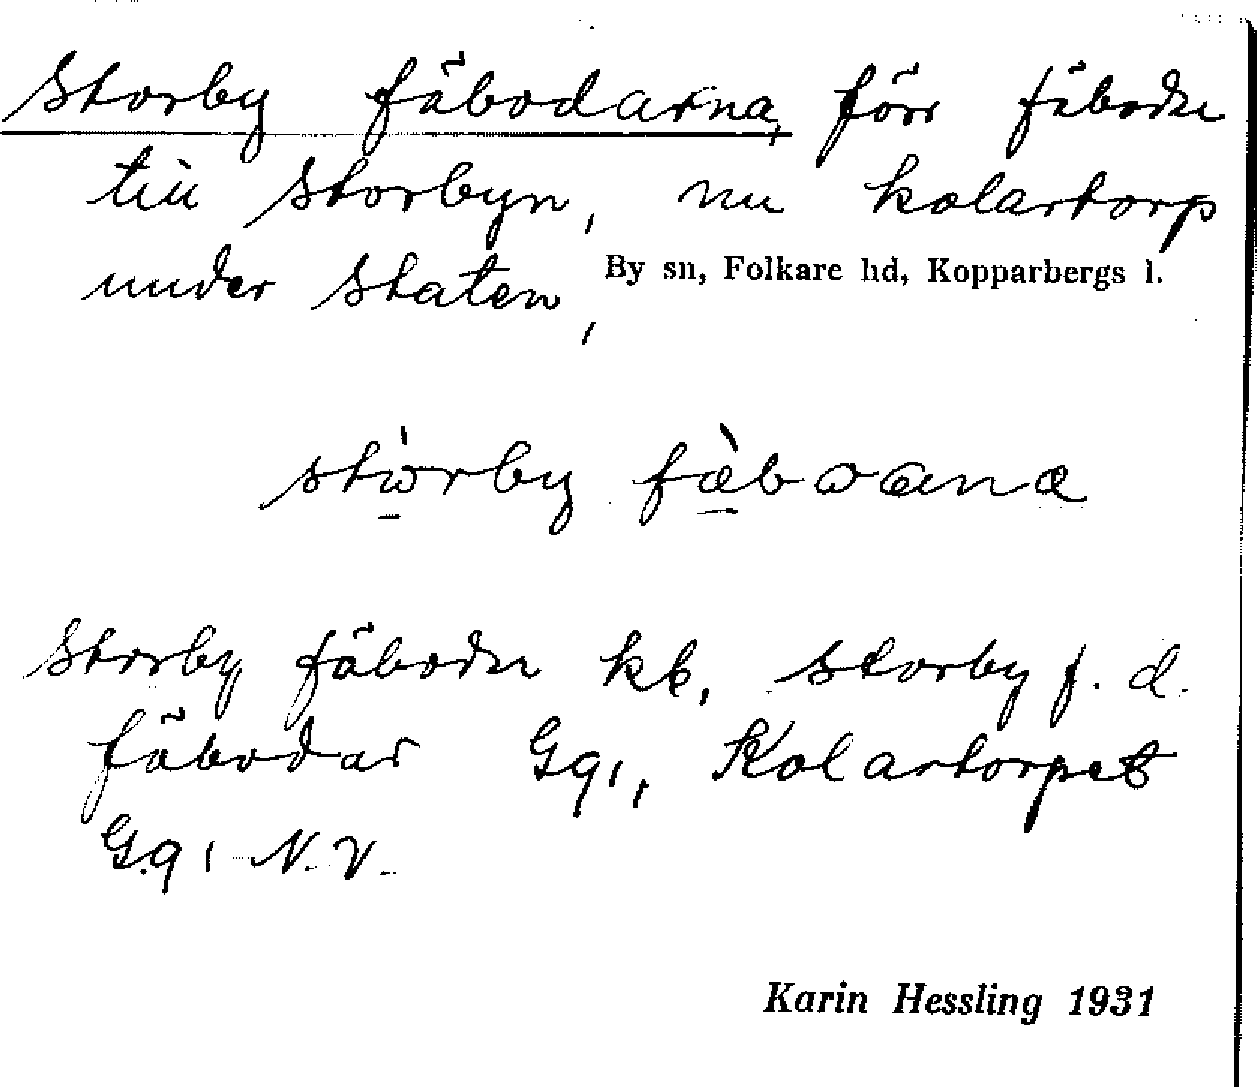 Storby fäbodarna, förr fäboder
till Storbyn, nu kolartorp
under Staten,
By sn, Folkare hd, Kopparbergs l.
Storby fäboder kb, Storby f. d.
fäbodar Gq1, Kolartorpet
Gq1 N.V.
Karin Hessling 1931